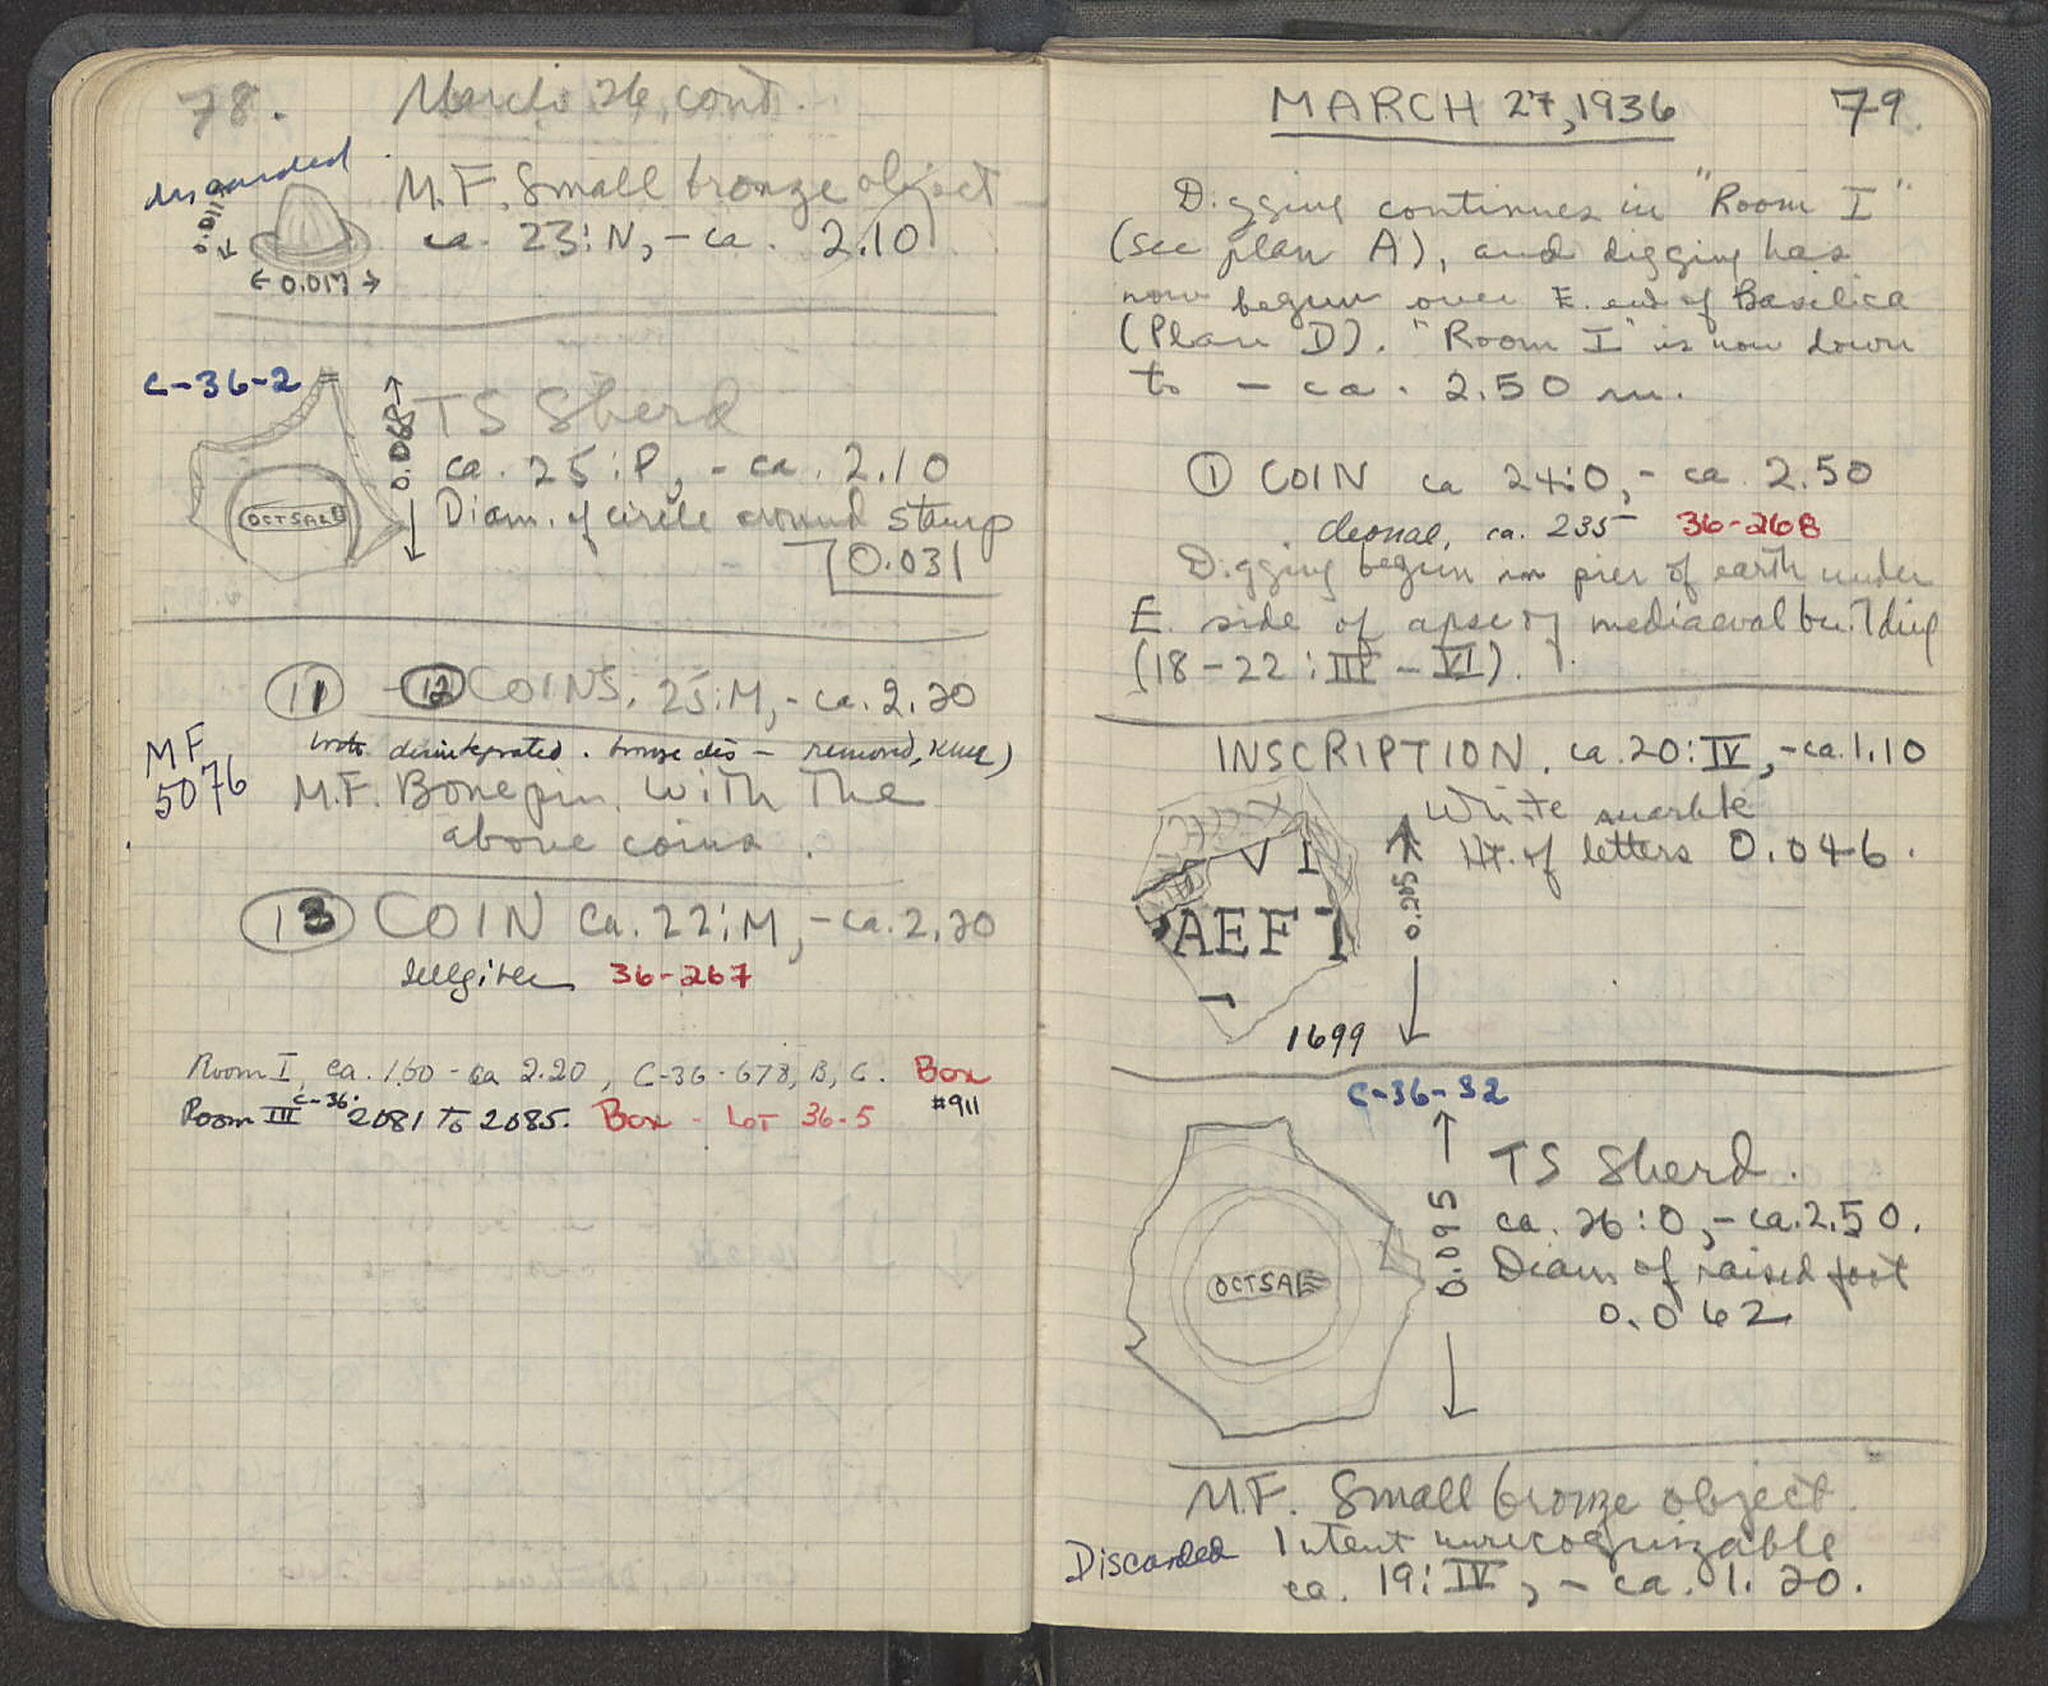 78.
March 26, cont.
discarded
M.F. Small bronze object
ca. 23:N, - ca. 2.10
0.011
0.017
C-36-2
TS Sherd
0.068
ca. 25:P, - ca. 2.10
Diam. of circle around stamp
0.031
OCTSAL
11 - 12 COINS. 25:M, - ca. 2.20
both disintegrated. bronze dis - removed,
MF
5076
M.F. Bone pin. With the
above coins.
13 COIN Ca. 22:M, - ca. 2.20
36-267
Room I, ca. 1.60 - ca 2.20, C-36-678, B, C. Box
#911
Room III C-36- 2081 To 2085. Box - Lot 36-5
MARCH 27, 1936
79.
Digging continues in "Room I"
(see plan A), and digging has
now begun over E. end of Basilica
(Plan D). "Room I" is now down
to - ca. 2.50 m.
1 COIN ca 24:O, - ca. 2.50
ca. 235 36-268
Digging begun in pier of earth under
E. side of apse of mediaeval building
(18-22: III - VI).
INSCRIPTION. ca. 20:IV, - ca. 1.10
White marble
Ht. of letters 0.046.
VI
AEFI
0.205
1699
C-36-32
TS Sherd.
ca. 26:O, - ca. 2.50.
Diam of raised foot
0.062
0.095
OCTSAE
M.F. Small bronze object.
Discarded
Intent unrecognizable
ca. 19:IV, - ca. 1.20.